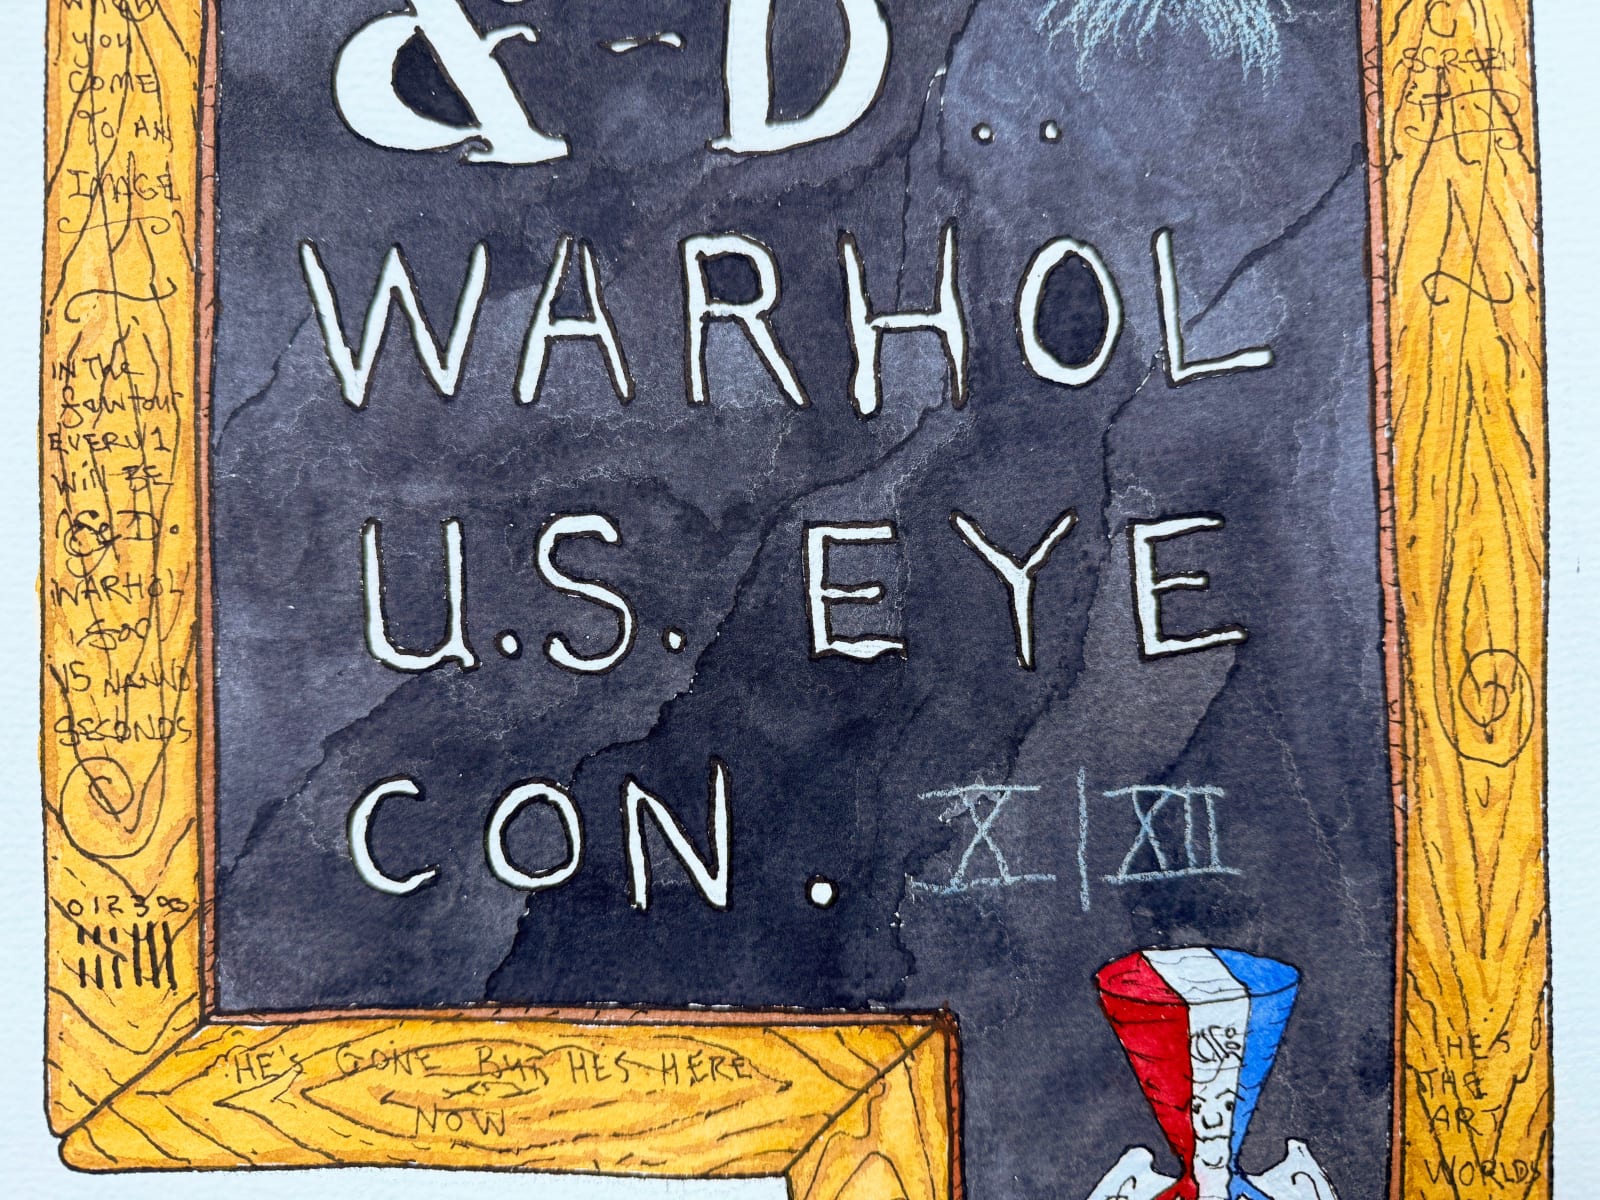 WHEN
YOU
COME
TO AN
IMAGE
IN THE
EVERY 1
WILL BE
& D.
WARHOL
for
15 NANNO
SECONDS
0 1 2 3
& - D..
WARHOL
U.S. EYE
CON. X | XII
HE'S GONE BUT HES HERE
NOW
C
SCREEN
HES
THE
ART
WORLDS